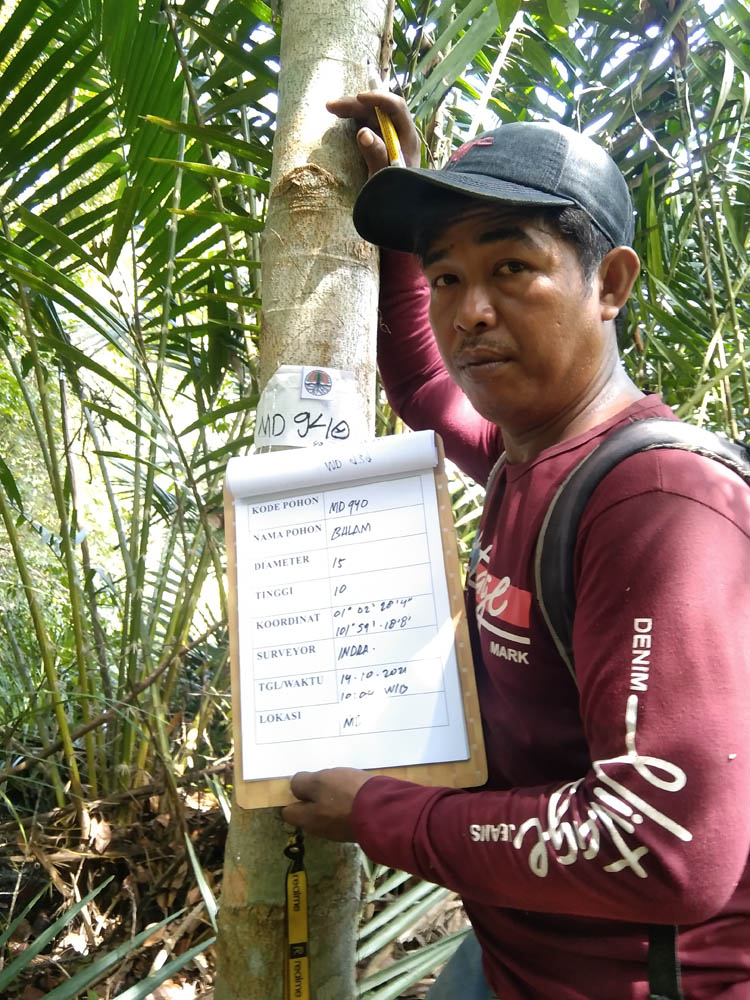 MD 940
KODE POHON MD 940
NAMA POHON BALAM
DIAMETER 15
TINGGI 10
KOORDINAT 01° 02' 28'4"
101° 59' 18'8"
SURVEYOR INDRA.
TGL/WAKTU 14-10-2021
10:00 WIB
LOKASI
MARK
DENIM
Vintage
JEANS
realme